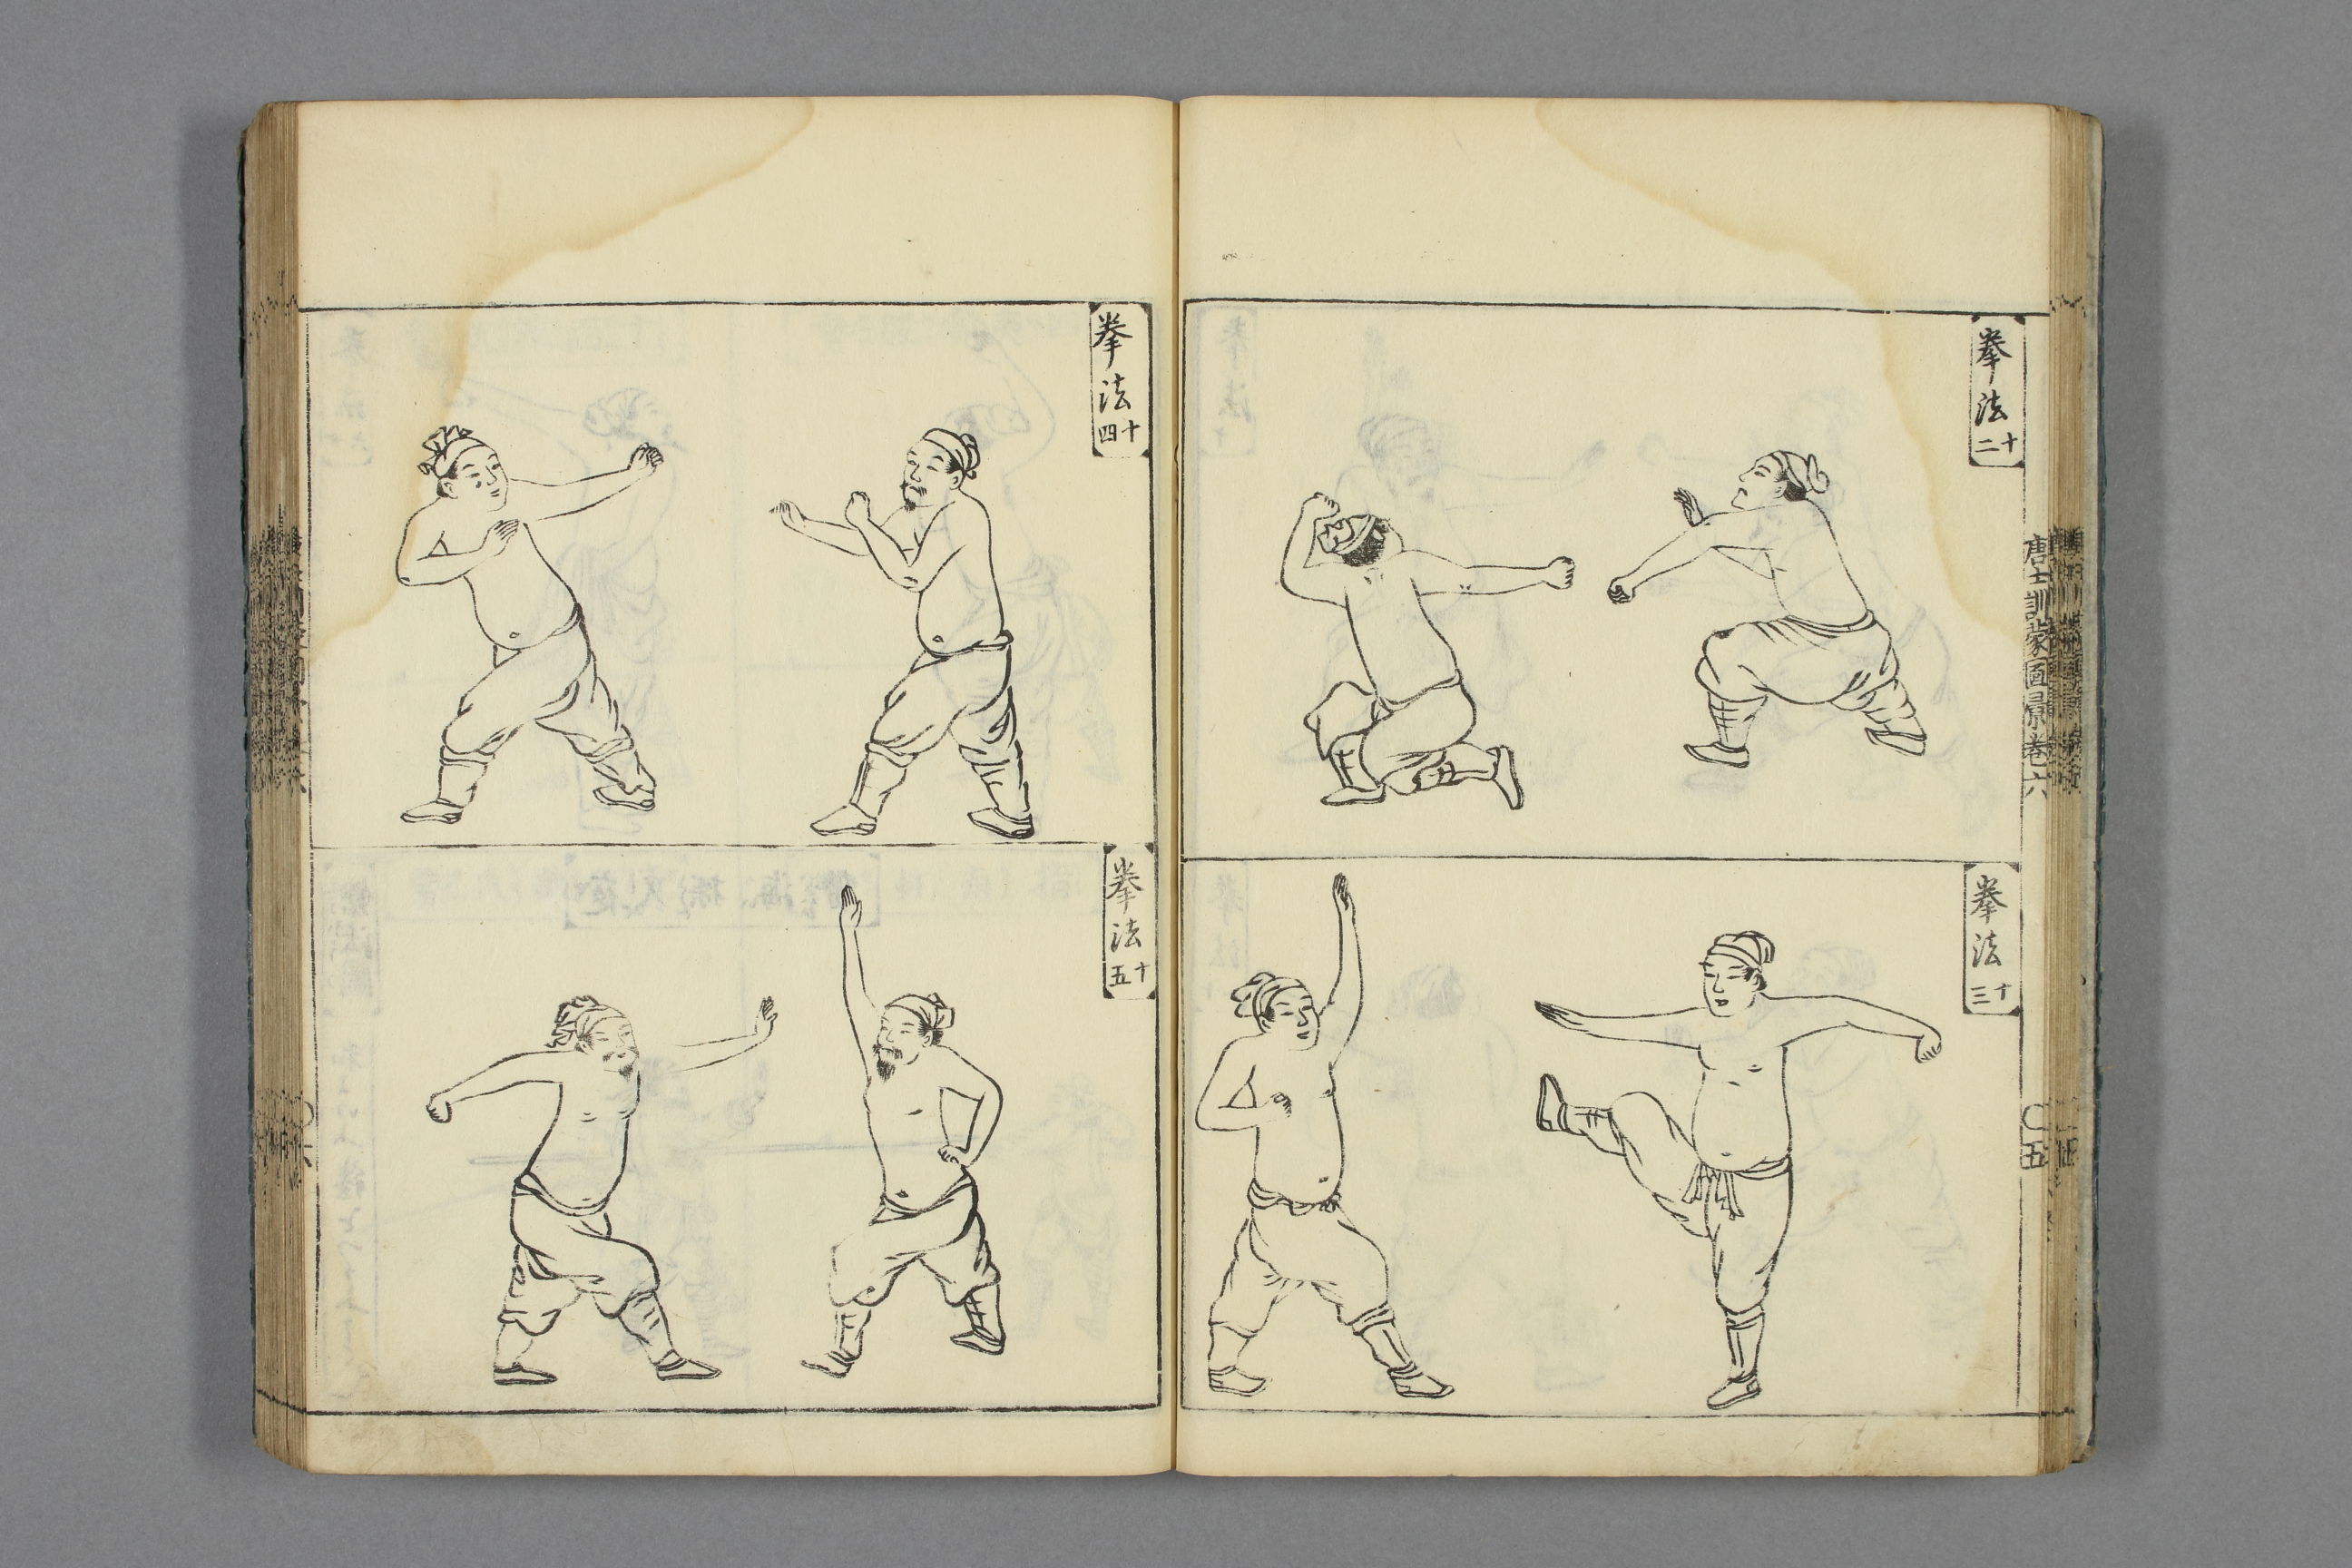 拳法十二
拳法十三
唐土訓蒙圖彙卷六
〇五
拳法十四
拳法十五